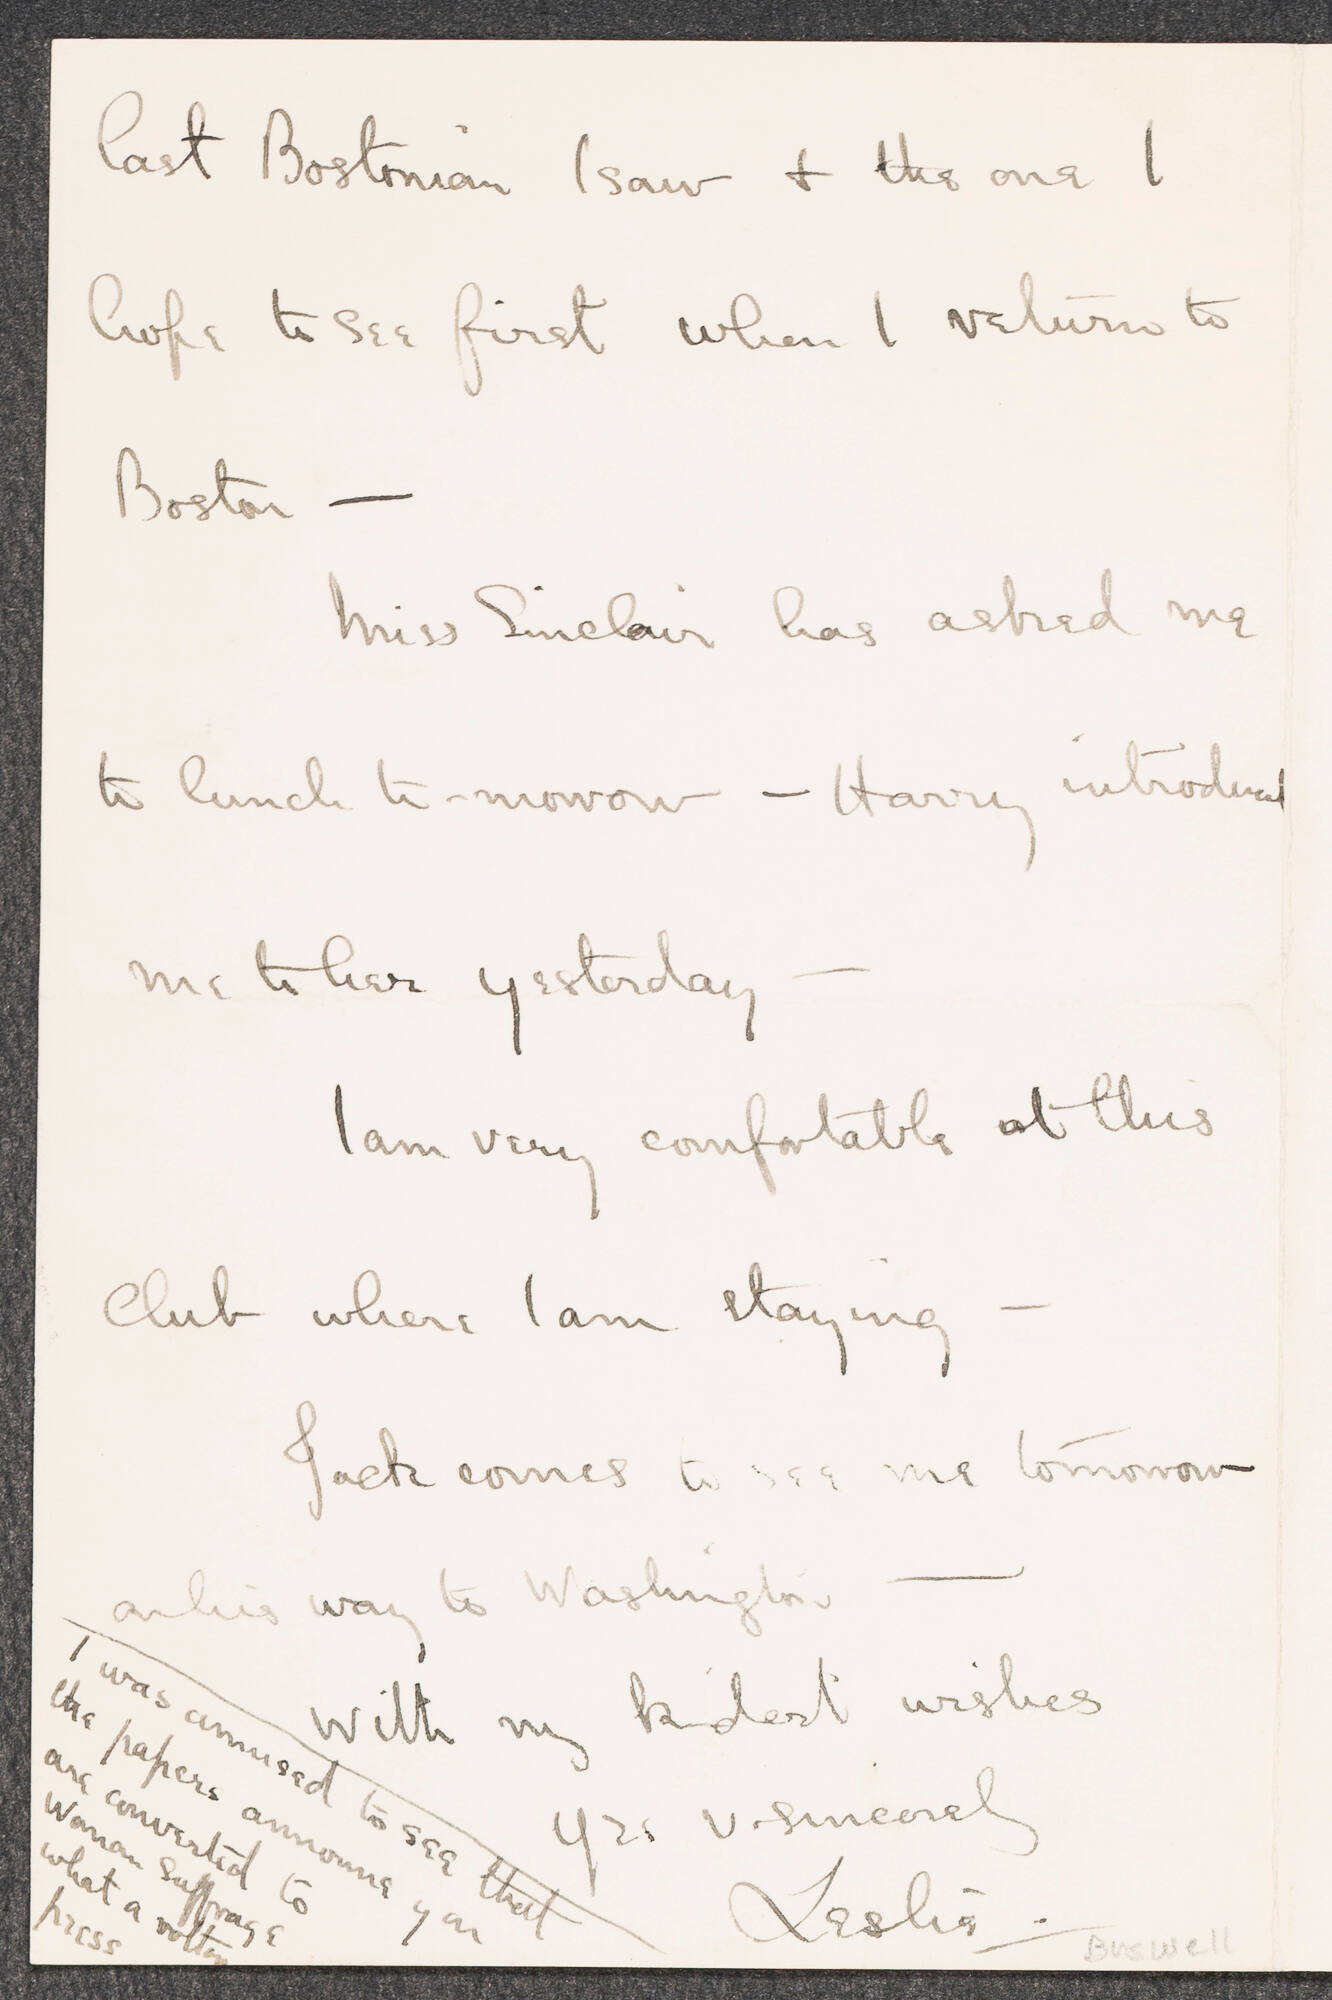 last Bostonian I saw & the one I
hope to see first when I return to
Boston —
Miss Sinclair has asked me
to lunch to-morrow — Harry introduced
me to her yesterday —
I am very comfortable at this
Club where I am staying —
Jack comes to see me tomorrow
on his way to Washington —
With my kindest wishes
Yrs v. sincerely
Leslie.
Buswell
I was amused to see that
the papers announce you
are converted to
Woman Suffrage
what a rotten
press